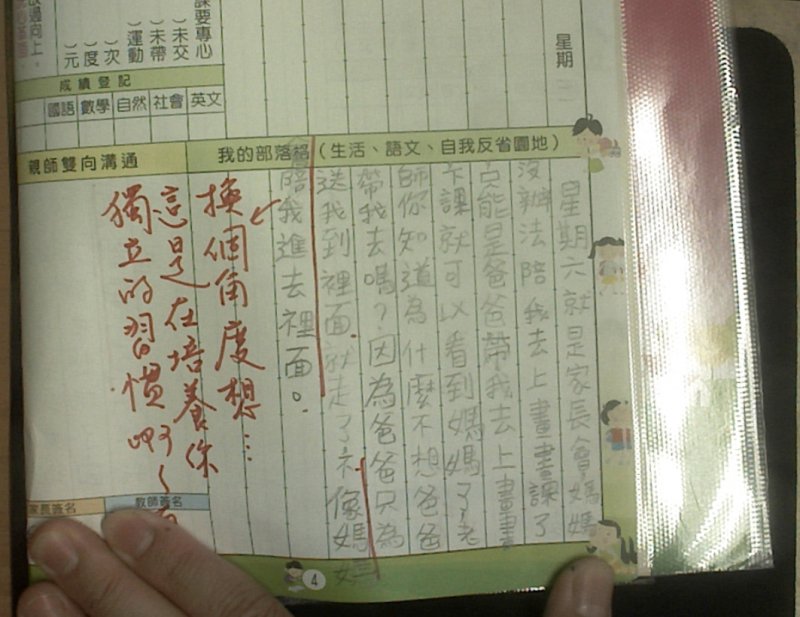 課要專心
)未交
)未帶
)運動
)次
)度
)元
改過向上。
星期
成績登記
國語 數學 自然 社會 英文
親師雙向溝通
我的部落格(生活、語文、自我反省園地)
星期六就是家長會媽媽
沒辦法陪我去上畫畫課了
只能是爸爸帶我去上畫畫
下課就可以看到媽媽了,老
師你知道為什麼不想爸爸
帶我去嗎?因為爸爸只為
送我到裡面就走了不像媽媽
會陪我進去裡面。
換個角度想…
這是在培養你
獨立的習慣啊~
家長簽名
教師簽名
4